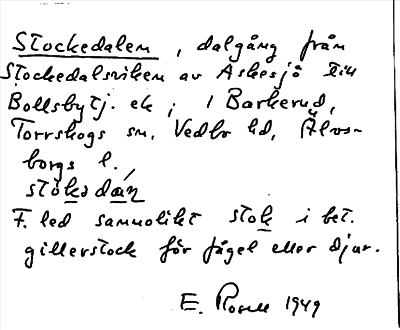 Stockedalen, dalgång från
Stockedalsviken av Askesjö till
Bollsbytj. etc; i Barkerud,
Torrskogs sn, Vedbo hd, Älvs-
borgs l.
stòksdán
F. led sannolikt stok i bet.
gillerstock för fågel eller djur.
E. Rosell 1949